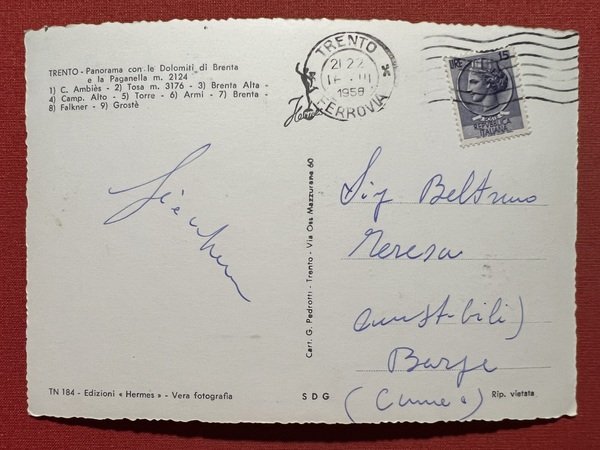 TRENTO - Panorama con le Dolomiti di Brenta
e la Paganella m. 2124
1) C. Ambiès - 2) Tosa m. 3176 - 3) Brenta Alta -
4) Camp. Alto - 5) Torre - 6) Armi - 7) Brenta -
8) Falkner - 9) Grostè
TRENTO
21-22
1958
FERROVIA
LIRE 15
REPUBBLICA
ITALIANA
Cart. G. Pedrotti - Trento - Via Oss Mazzurana 60
Sig Beltramo
Teresa
Barge
(Cuneo)
TN 184 - Edizioni « Hermes » - Vera fotografia
SDG
Rip. vietata